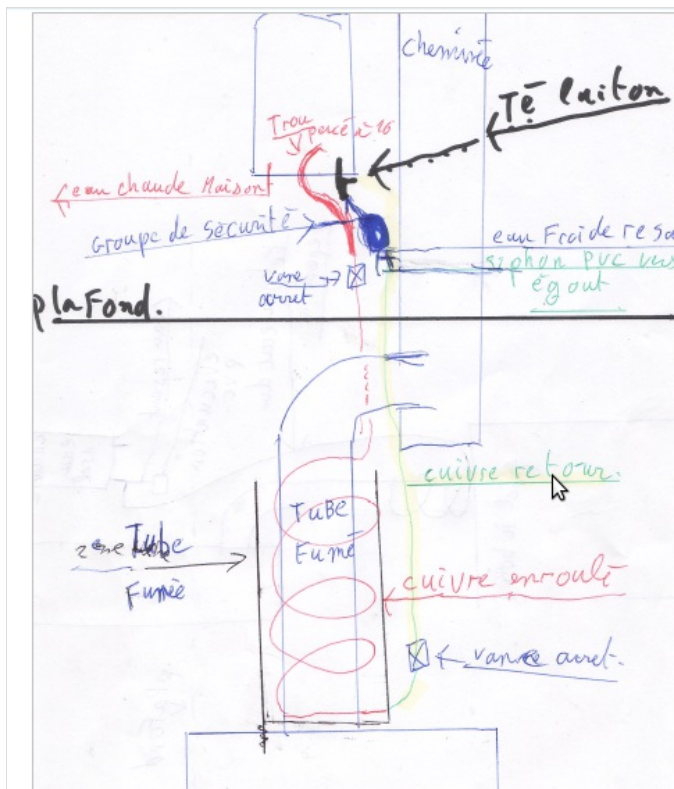 cheminée
Té laiton
Trou
percé à 16
eau chaude Maison
Groupe de sécurité
eau Froide resa
siphon PVC vers
égout
vane
arret
plafond.
cuivre retour.
TUBE
Fumé
Tube
Fumée
cuivre enroulé
arret.